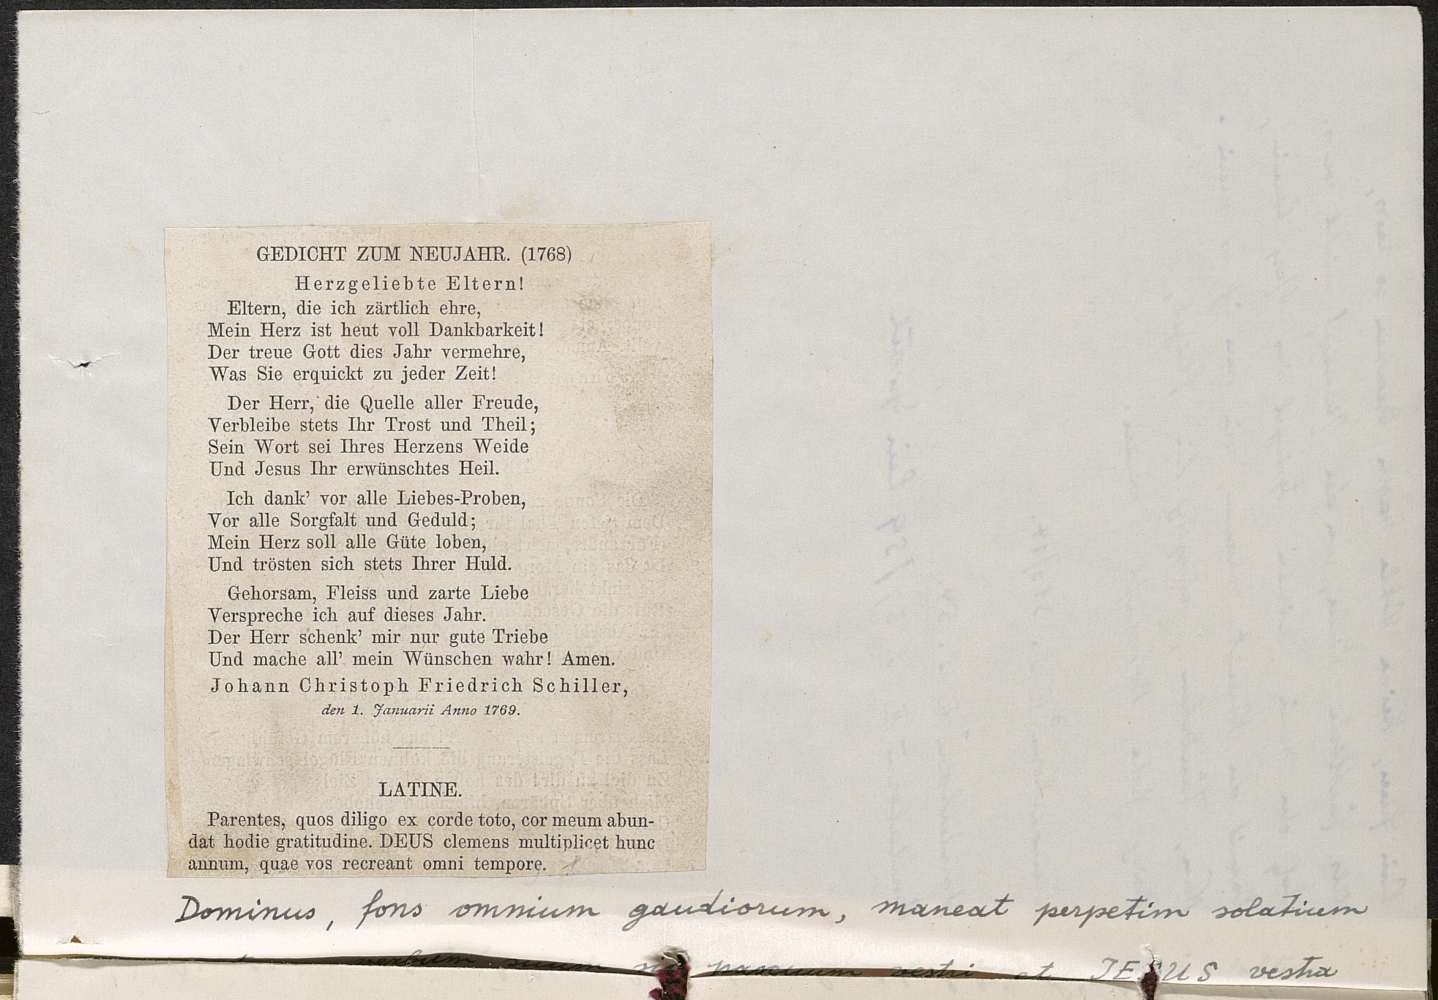 GEDICHT ZUM NEUJAHR. (1768)
Herzgeliebte Eltern!
Eltern, die ich zärtlich ehre,
Mein Herz ist heut voll Dankbarkeit!
Der treue Gott dies Jahr vermehre,
Was Sie erquickt zu jeder Zeit!
Der Herr, die Quelle aller Freude,
Verbleibe stets Ihr Trost und Theil;
Sein Wort sei Ihres Herzens Weide
Und Jesus Ihr erwünschtes Heil.
Ich dank' vor alle Liebes-Proben,
Vor alle Sorgfalt und Geduld;
Mein Herz soll alle Güte loben,
Und trösten sich stets Ihrer Huld.
Gehorsam, Fleiss und zarte Liebe
Verspreche ich auf dieses Jahr.
Der Herr schenk' mir nur gute Triebe
Und mache all' mein Wünschen wahr! Amen.
Johann Christoph Friedrich Schiller,
den 1. Januarii Anno 1769.
LATINE.
Parentes, quos diligo ex corde toto, cor meum abun-
dat hodie gratitudine. DEUS clemens multiplicet hunc
annum, quae vos recreant omni tempore.
Dominus, fons omnium gaudiorum, maneat perpetim solatium
pascuum vestri et JESUS vestra